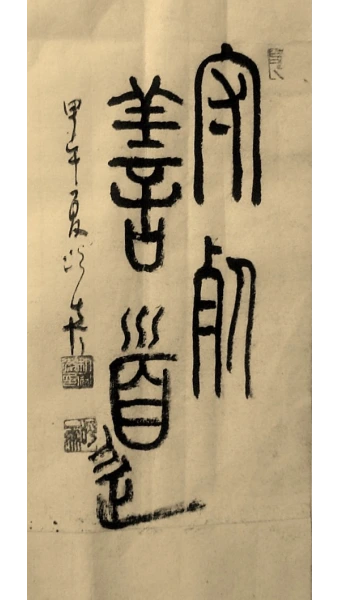 守死
善道
甲午夏